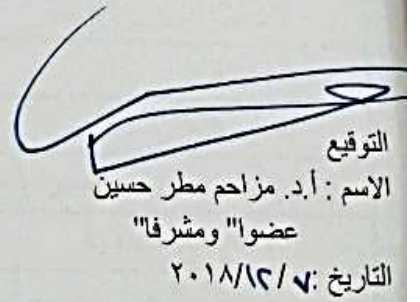 التوقيع
الاسم : أ.د. مزاحم مطر حسين
عضوا" ومشرفا"
التاريخ : ٧ / ١٢/ ٢٠١٨